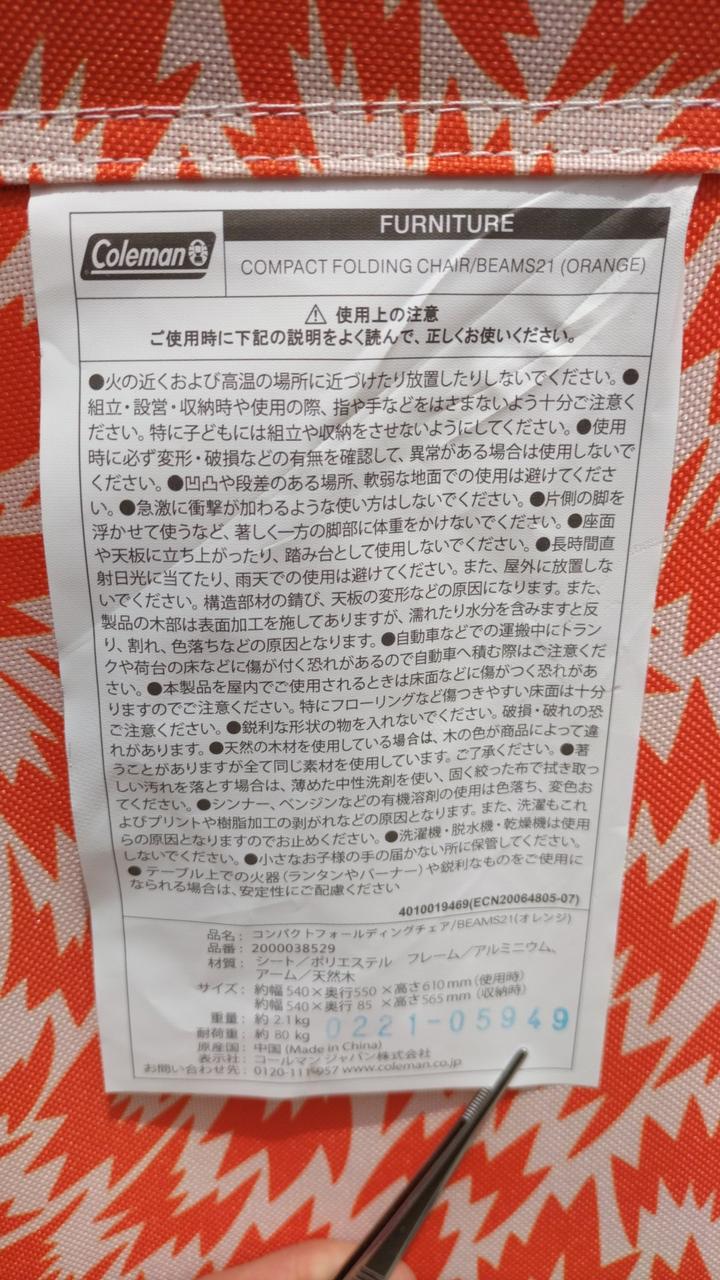 Coleman
FURNITURE
COMPACT FOLDING CHAIR/BEAMS21 (ORANGE)
⚠ 使用上の注意
ご使用時に下記の説明をよく読んで、正しくお使いください。
●火の近くおよび高温の場所に近づけたり放置したりしないでください。●
組立・設営・収納時や使用の際、指や手などをはさまないよう十分ご注意く
ださい。特に子どもには組立や収納をさせないようにしてください。●使用
時に必ず変形・破損などの有無を確認して、異常がある場合は使用しないで
ください。●凹凸や段差のある場所、軟弱な地面での使用は避けてくださ
い。●急激に衝撃が加わるような使い方はしないでください。●片側の脚を
浮かせて使うなど、著しく一方の脚部に体重をかけないでください。●座面
や天板に立ち上がったり、踏み台として使用しないでください。●長時間直
射日光に当てたり、雨天での使用は避けてください。また、屋外に放置しな
いでください。構造部材の錆び、天板の変形などの原因になります。また、
製品の木部は表面加工を施してありますが、濡れたり水分を含みますと反
り、割れ、色落ちなどの原因となります。●自動車などでの運搬中にトラン
クや荷台の床などに傷が付く恐れがあるので自動車へ積む際はご注意くだ
さい。●本製品を屋内でご使用されるときは床面などに傷がつく恐れがあ
りますのでご注意ください。特にフローリングなど傷つきやすい床面は十分
ご注意ください。●鋭利な形状の物を入れないでください。破損・破れの恐
れがあります。●天然の木材を使用している場合は、木の色が商品によって違
うことがありますが全て同じ素材を使用しています。ご了承ください。●著
しい汚れを落とす場合は、薄めた中性洗剤を使い、固く絞った布で拭き取っ
てください。●シンナー、ベンジンなどの有機溶剤の使用は色落ち、変色お
よびプリントや樹脂加工の剥がれなどの原因となります。また、洗濯もこれ
らの原因となりますのでお止めください。●洗濯機・脱水機・乾燥機は使用
しないでください。●小さなお子様の手の届かない所に保管してください。
● テーブル上での火器(ランタンやバーナー)や鋭利なものをご使用に
なられる場合は、安定性にご配慮ください
4010019469(ECN20064805-07)
品名: コンパクトフォールディングチェア/BEAMS21(オレンジ)
品番: 2000038529
材質: シート/ポリエステル フレーム/アルミニウム、
アーム/天然木
サイズ: 約幅 540×奥行550 ×高さ610mm(使用時)
約幅 540×奥行 85 ×高さ565mm(収納時)
重量: 約 2.1kg
耐荷重: 約 80 kg
0221-05949
原産国: 中国 (Made in China)
表示社: コールマン ジャパン株式会社
お問い合わせ先: 0120-111-957 www.coleman.co.jp